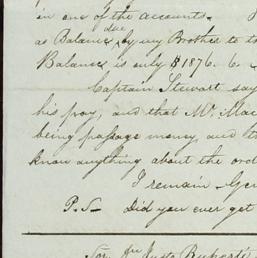 in one of the accounts.
as Balance due by my Brother to t
Balance is only $1876. 6.
Captain Stewart say
his pay, and that Mr. Mac
being passage money, and t
know anything about the ord
I remain
P.S. Did you ever get